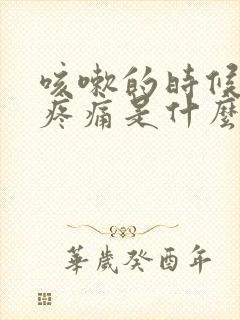 咳嗽的時候
疼痛是什麼
華歲癸酉年